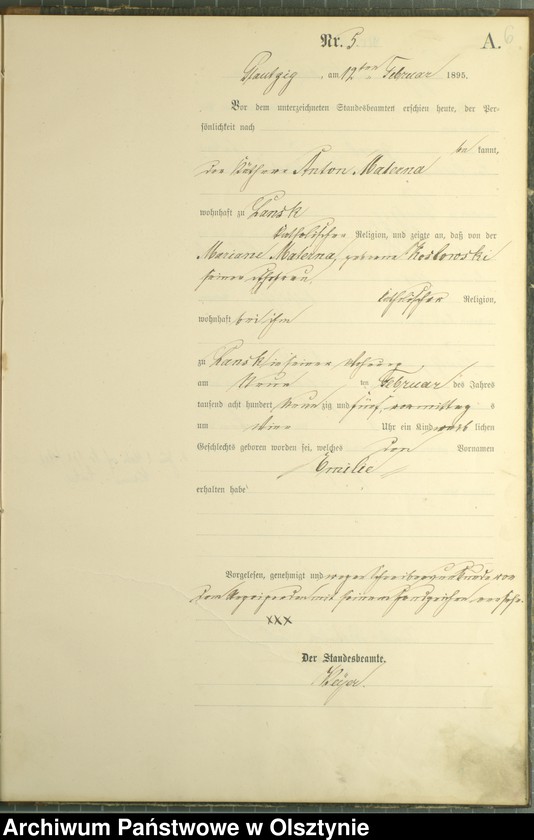 Nr. 5. A. 6
am 12ten Februar 1895.
Vor dem unterzeichneten Standesbeamten erschien heute, der Per-
sönlichkeit nach
be kannt,
der Käthner Anton Materna
wohnhaft zu Lansk
katholischer Religion, und zeigte an, daß von der
Mariane Materna, geborene Koslowski
seiner Ehefrau,
katholischer Religion,
wohnhaft bei ihm
zu Lansk in seiner Wohnung
am Neun ten Februar des Jahres
tausend acht hundert Neun zig und fünf, vormittag s
um Uhr ein Kind weib lichen
Geschlechts geboren worden sei, welches den Vornamen
Emilie
erhalten habe
Vorgelesen, genehmigt und wegen Schreibensunkunde von
dem Anzeigenden mit seinem Handzeichen versehen.
xxx
Der Standesbeamte.
Archiwum Państwowe w Olsztynie